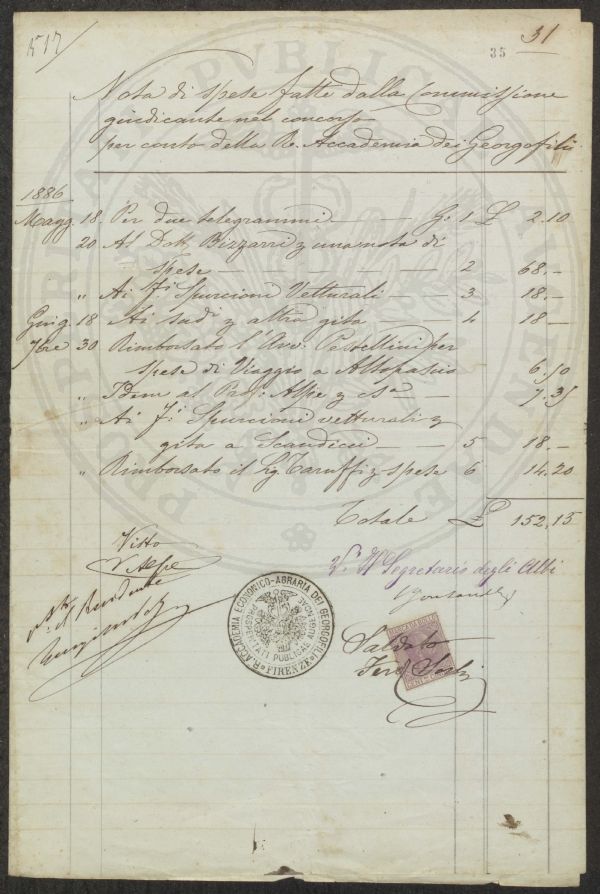 1517
31
35
Nota di spese fatte dalla Commissione
giudicante nel concorso
per conto della Re. Accademia dei Georgofili
1886
Magg. 18. Per due telegrammi — G. 1 £ 2.10
20 Al Dott. Bizzarri p una nota di
spese — 2 68.–
" Ai Fi. Spurcioni Vetturali — 3 18.–
Giug. 18 Ai sudi p altra gita — 4 18 –
7bre 30 Rimborsato l'Avv: Pestellini per
spese di Viaggio a Altopascio 6,50
" Idem al Prof: Alpe p 7.35
" Ai Fi. Spurcioni vetturali p
gita a Scandicci — 5 18.–
" Rimborsato il Sig. Taruffi p spese 6 14.20
Totale £ 152,15
Visto
V. Alpe
V° Il Segretario degli Atti
Il Presidente
R. ACCADEMIA ECONOMICO-AGRARIA DEI GEORGOFILI
FIRENZE
PROSPERITATI PUBLICAE AVGENDAE
Saldato
MARCA DA BOLLO
PROSPERITATI PUBLICAE AVGENDAE